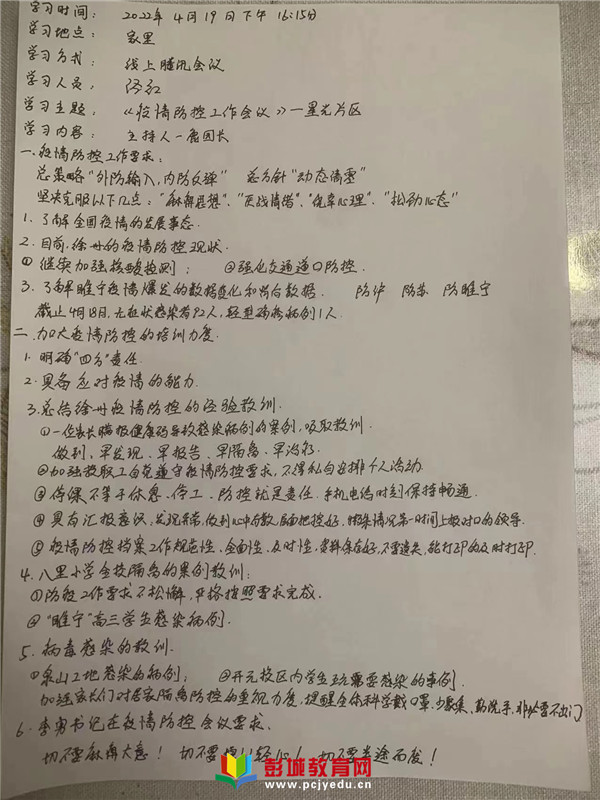 学习时间： 2022年4月19日下午 16:15分
学习地点： 家里
学习方式： 线上腾讯会议
学习人员：
学习主题： 《疫情防控工作会议》一星光片区
学习内容： 主持人一唐园长
一.疫情防控工作要求：
总策略"外防输入，内防反弹" 总方针"动态清零"
坚决克服以下几点："麻痹思想"、"厌战情绪"、"侥幸心理"、"松劲心态"
1. 了解全国疫情的发展事态.
2. 目前.徐州的疫情防控现状.
① 继续加强核酸检测； ②强化交通道口防控.
3. 了解睢宁疫情爆发的数据变化和当前数据. 防沪 防苏 防睢宁
截止4月18月,无症状感染者92人,轻型确诊病例1人.
二.加大疫情防控的培训力度.
1. 明确"四方"责任.
2. 具备应对疫情的能力.
3.总结徐州疫情防控的经验教训.
①一位家长瞒报健康码导致感染病例的案例,吸取教训.
做到、早发现、早报告、早隔离、早治疗.
②加强教职工自觉遵守疫情防控要求,不得私自安排个人活动.
③ 停课不等于休息、停工、防控就是责任.手机电话时刻保持畅通.
④ 具有汇报意识,发现异常,做到心中有数,后面把控好,特殊情况第一时间上报对口的领导.
⑤ 疫情防控档案工作规范性、全面性、及时性,资料保存好,不要遗失,能打印的及时打印.
4. 八里小学全校隔离的案例教训：
①防疫工作要求不松懈,严格按照要求完成.
②"睢宁"高三学生感染病例.
5. 病毒感染的教训.
①泉山工地感染的病例； ②开元校区内学生玩耍感染的事例.
加强家长们对居家隔离防控的重视力度,提醒全体科学戴口罩,少聚集、勤洗手、非必要不出门
6. 李勇书记在疫情防控会议要求.
切不要麻痹大意！ 切不要掉以轻心！ 切不要半途而废！
彭城教育网
www.pcjyedu.cn